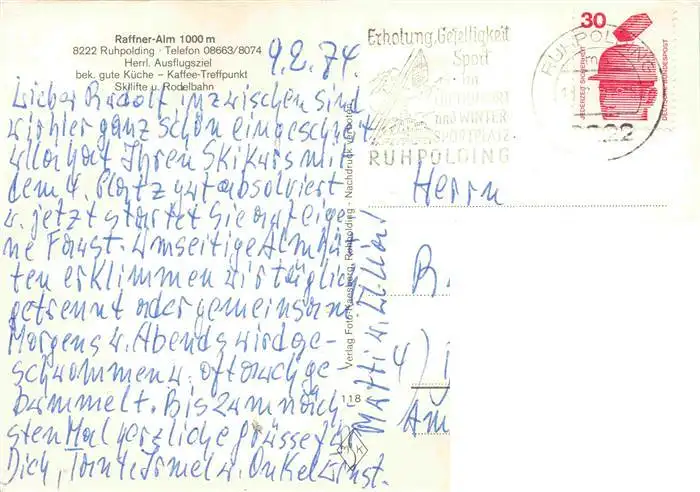 Raffner-Alm 1000 m
8222 Ruhpolding · Telefon 08663/8074
Herrl. Ausflugsziel
bek. gute Küche – Kaffee-Treffpunkt
Skilifte u. Rodelbahn
9.2.74.
Lieber Rudolf inzwischen sind
wir hier ganz schön eingeschneit
hat Ihren Skikurs mit
dem 4. Platz gut absolviert
u. jetzt startet Sie auf eige-
ne Faust. Umseitige Almhüt-
ten erklimmen wir täglich
getrennt oder gemeinsam
Morgens u. Abends wird ge-
schwommen u. oft auch ge
bummelt. Bis zum näch-
sten Mal herzliche Grüsse für
Dich, Tante Irmel u. Onkel Ernst.
Verlag Foto Nachdruck verboten
118
Erholung, Geselligkeit
Sport
im
LUFTKURORT
und WINTER
SPORTPLATZ
RUHPOLDING
RUHPOLDING
8222
30
JEDERZEIT SICHERHEIT
DEUTSCHE BUNDESPOST
Herrn
R
4)
Am